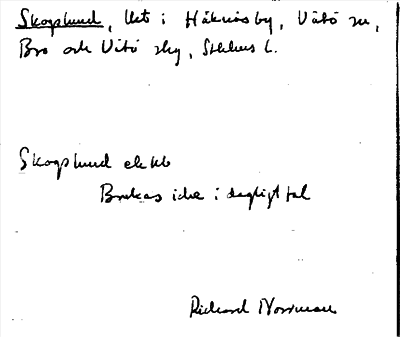 Skoglund, lht i Håknäsby, Vätö sn,
Bro och Vätö skg, Sthlms l.
Skoglund
Brukas icke i dagligt tal
Richard Norrman